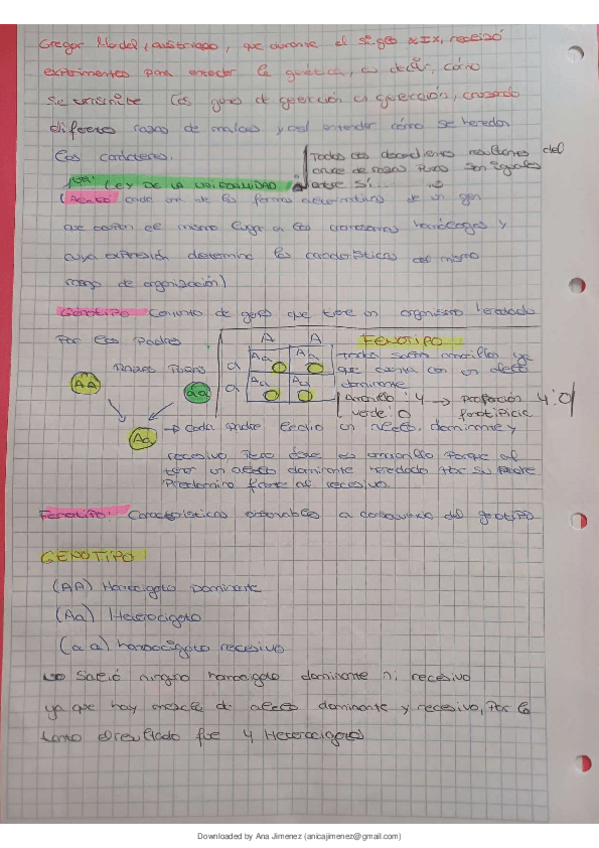 Gregor Mendel, austriaco, que durante el siglo XIX, realizó
experimentos para entender la genética, es decir, cómo
se transmite los genes de generción en generación, cruzando
diferes razas de y así entender cómo se heredan
los carácteres.
Todos los descendientes resultantes del
cruce de razas Puras son iguales
entre sí...
1ª LEY DE LA UNIFORMIDAD
(Alelo cada una de las formas alternativas de un gen
que ocupan el mismo lugar en los cromosomas homólogos y
cuya expresión determina las características del mismo
rasgo de organización)
Génotipo Conjunto de genes que tiene un organismo heredado
Por los Padres
Razas Puras
AA
aa
Aa
A A
a Aa Aa
a Aa Aa
FENOTIPO
Todas salen amarillas ya
que cuenta con un alelo
dominante
Amarillo: 4 → proporción 4:0
verde: 0 fenotípica
→ Cada padre un alelo dominante y
recesivo, Pero éste es amarillo Porque al
tener un alelo dominante heredado por su Padre
Predomina frente al recesivo.
Fenotipo: Características observables a consecuencia del genotipo
GENOTIPO
(AA) Homocigoto Dominante
(Aa) Heterocigoto
(aa) homocigoto recesivo
no Salió ninguno homocigoto dominante ni recesivo
ya que hay mezcla de alelos dominante y recesivo, Por lo
tanto el resultado fue 4 Heterocigotos
Downloaded by Ana Jimenez (anicajimenez@gmail.com)